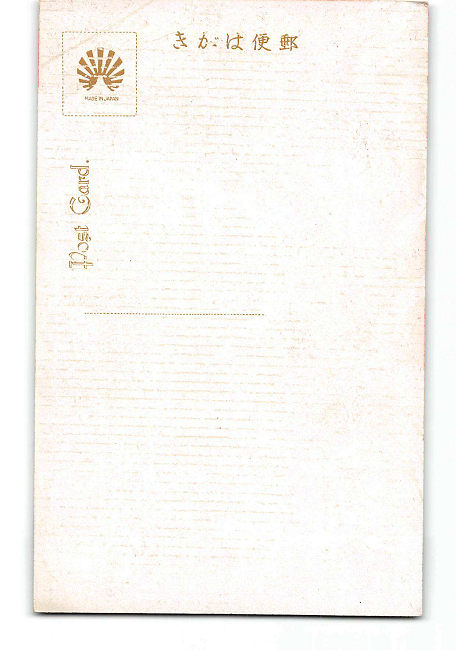 きがは便郵
MADE IN JAPAN
Post Card.